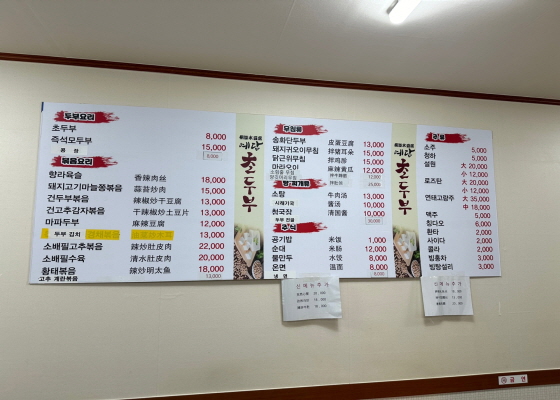 두부요리
초두부 8,000
즉석모두부 15,000
볶음요리
향라육슬 香辣肉丝 18,000
돼지고기마늘쫑볶음 蒜苔炒肉 15,000
건두부볶음 辣椒炒干豆腐 13,000
건고추감자볶음 干辣椒炒土豆片 13,000
마파두부 麻辣豆腐 12,000
두부 김치 13,000
소배필고추볶음 辣炒肚皮肉 22,000
소배필수육 清水肚皮肉 20,000
황태볶음 辣炒明太鱼 18,000
고추 계란볶음 13,000
초두부
무침류
송화단두부 皮蛋豆腐 13,000
돼지귀오이무침 拌猪耳朵 15,000
닭근위무침 拌鸡胗 15,000
마라오이 麻辣黄瓜 12,000
소탕 牛肉汤 13,000
시래기국 酱汤 10,000
청국장 清国酱 10,000
두부 전골 30,000
주식
공기밥 米饭 1,000
순대 米肠 12,000
물만두 水饺 8,000
온면 温面 8,000
냉 면
초두부
주류
소주 5,000
청하 5,000
설원 大 20,000
小 12,000
로즈탄 大 20,000
小 12,000
연태고량주 大 35,000
中 18,000
맥주 5,000
칭다오 6,000
환타 2,000
사이다 2,000
콜라 2,000
빙홍차 3,000
빙탕설리 3,000
신메뉴추가
신메뉴추가
금 연